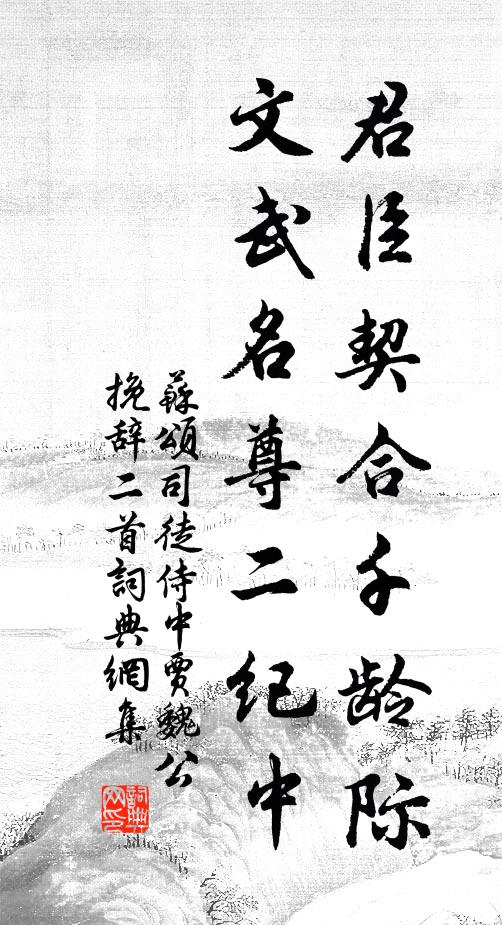 君臣契合千龄际
文武名尊二纪中
蘇頌司徒侍中賈魏公
挽辞二首詞典網集
詞典网印